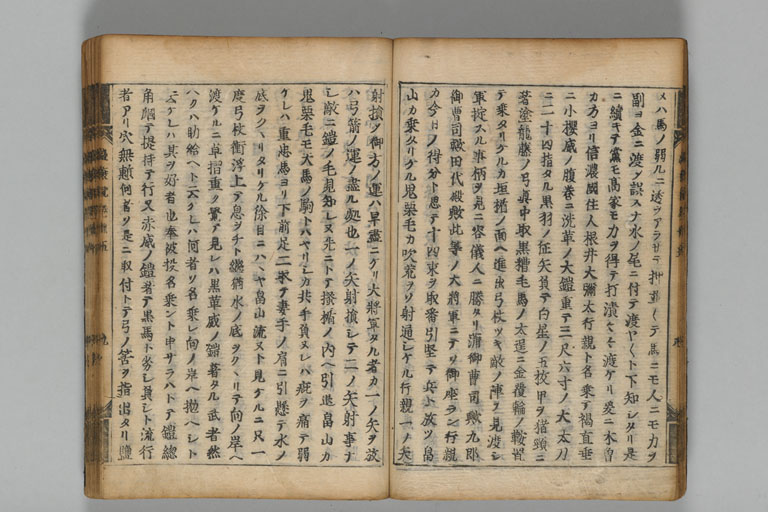 メハ馬ノ弱ルニ透ヲアラサテ押並ヘテ馬ニモ人ニモ力ヲ
副ヨ金ニ渡シ誤スナ水ノ尾ニ付テ渡ヤ〱ト下知シタリ是
ニ續キテ黨モ高家モ力ヲ得テ打漬〻〻渡ケリ爰ニ木曽
カ方ヨリ信濃國住人根井大彌太行親ト名乗テ褐直垂
ニ小櫻威ノ腹巻ニ洗革ノ大鎧重テ三尺六寸ノ大太刀
ニ二十四指タル黒羽ノ征矢負テ白星ノ五枚甲ヲ猪頭ニ
著塗籠藤ノ弓真中取黒糟毛馬ノ太逞ニ金覆輪ノ鞍置
テ乗タリケルカ垣楯ノ面ヘ進出弓杖ツヰテ敵ノ陣ヲ見渡シ
軍掟スル事柄ヲ見ニ容儀人ニ勝タリ蒲御曹司歟九郎
御曹司歟田代殿歟此等ノ大將軍ニテソ御座ラン行親
カ今日ノ得分ト思テ十四束ヲ取番引堅テ兵ト放ツ畠
山カ乗タリケル鬼栗毛カ吹荒ヲソ射通シケル行親一ノ矢
射損シ御方ノ運ハ早盡ニケリ大將軍タル者カ一ノ矢ヲ放
ハ弓箭ノ運ノ盡ル処也一ノ矢射損シテ二ノ矢射事ナ
シ敵ニ鎧ノ毛見知シヌ先ニトテ掻楯ノ内ヘ引退畠山カ
鬼栗毛モ大馬ノ駒トハヤリシカ共手負ヌレハ疵ヲ痛テ弱
ケレハ重忠馬ヨリ下前足二取テ妻手ノ肩ニ引懸テ水ノ
底ヲクヽリタリケル除目ニハハヤ畠山流ヌト見ケルニ只一
度弓杖衝浮上テ息ヲチト繼猶水ノ底ヲクヽリテ向ノ岸ヘ
渡ケルニ草摺重ク覺テ見レハ黒革威ノ鎧著タル武者然
ヘクハ助給ヘト云ケレハ何者ソ名乗レ向ノ岸ヘ抛ヘシト
云ケレハ其ヲ好者也奉被投名乗ント申サラハトテ鎧総
角掴テ提持テ行又赤威ノ鎧著テ黒馬ト劣シ負シト流行
者アリ穴無慙何者ソ是ニ取付トテ弓ノ筈ヲ指出タリ鹽